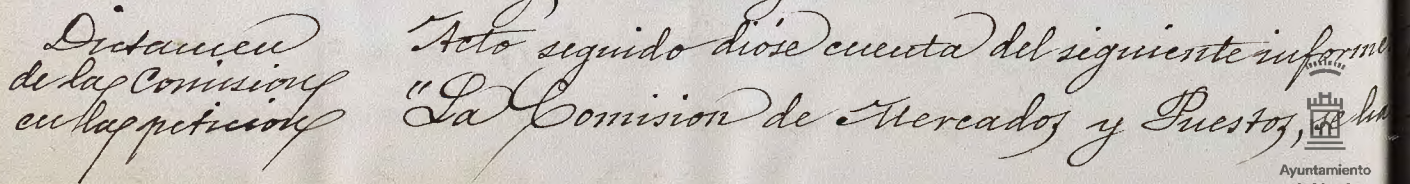 Dictamen
de la Comision
en la peticion
Acto seguido dióse cuenta del siguiente informe
"La Comision de Mercados y Puestos, se ha
Ayuntamiento